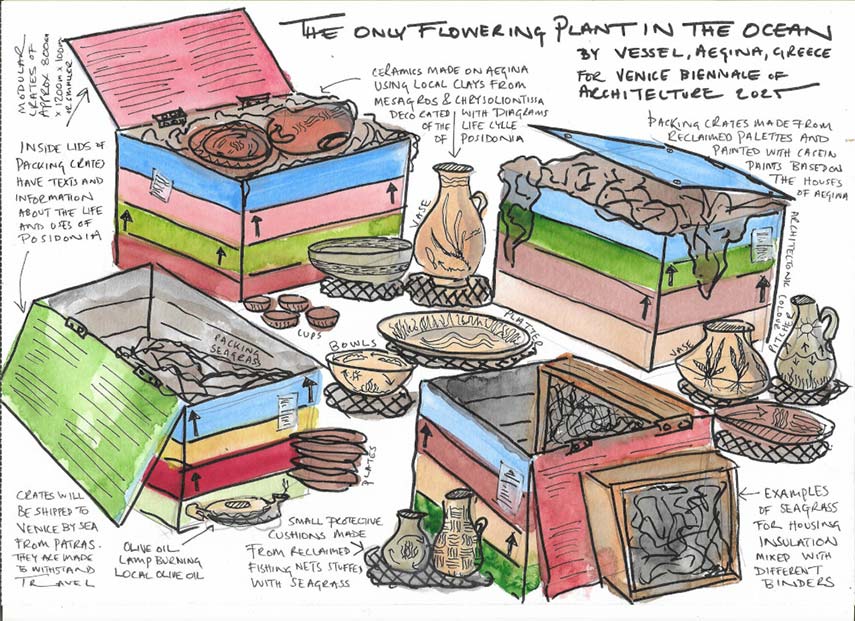 THE ONLY FLOWERING PLANT IN THE OCEAN
BY VESSEL, AEGINA, GREECE
FOR VENICE BIENNALE OF
ARCHITECTURE 2025
MODULAR
CRATES OF
APPROX 800mm
x 1200m x 100m
+ SMALLER
CERAMICS MADE ON AEGINA
USING LOCAL CLAYS FROM
MESAGROS & CHRYSOLIONTISSA
DECORATED WITH DIAGRAMS
OF THE LIFE CYCLE
OF POSIDONIA
PACKING CRATES MADE FROM
RECLAIMED PALETTES AND
PAINTED WITH CACEIN
PAINTS BASED ON
THE HOUSES
OF AEGINA
ARCHITECTONIC COLOUR
INSIDE LIDS OF
PACKING CRATES
HAVE TEXTS AND
INFORMATION
ABOUT THE LIFE
AND USES OF
POSIDONIA
VASE
CUPS
PLATTER
BOWLS
PACKING
SEAGRASS
VASE
PITCHER
PLATES
CRATES WILL
BE SHIPPED TO
VENICE BY SEA
FROM PATRAS.
THEY ARE MADE
TO WITHSTAND
TRAVEL
OLIVE OIL
LAMP BURNING
LOCAL OLIVE OIL
SMALL PROTECTIVE
CUSHIONS MADE
FROM RECLAIMED
FISHING NETS STUFFED
WITH SEAGRASS
EXAMPLES
OF SEAGRASS
FOR HOUSING
INSULATION
MIXED WITH
DIFFERENT
BINDERS